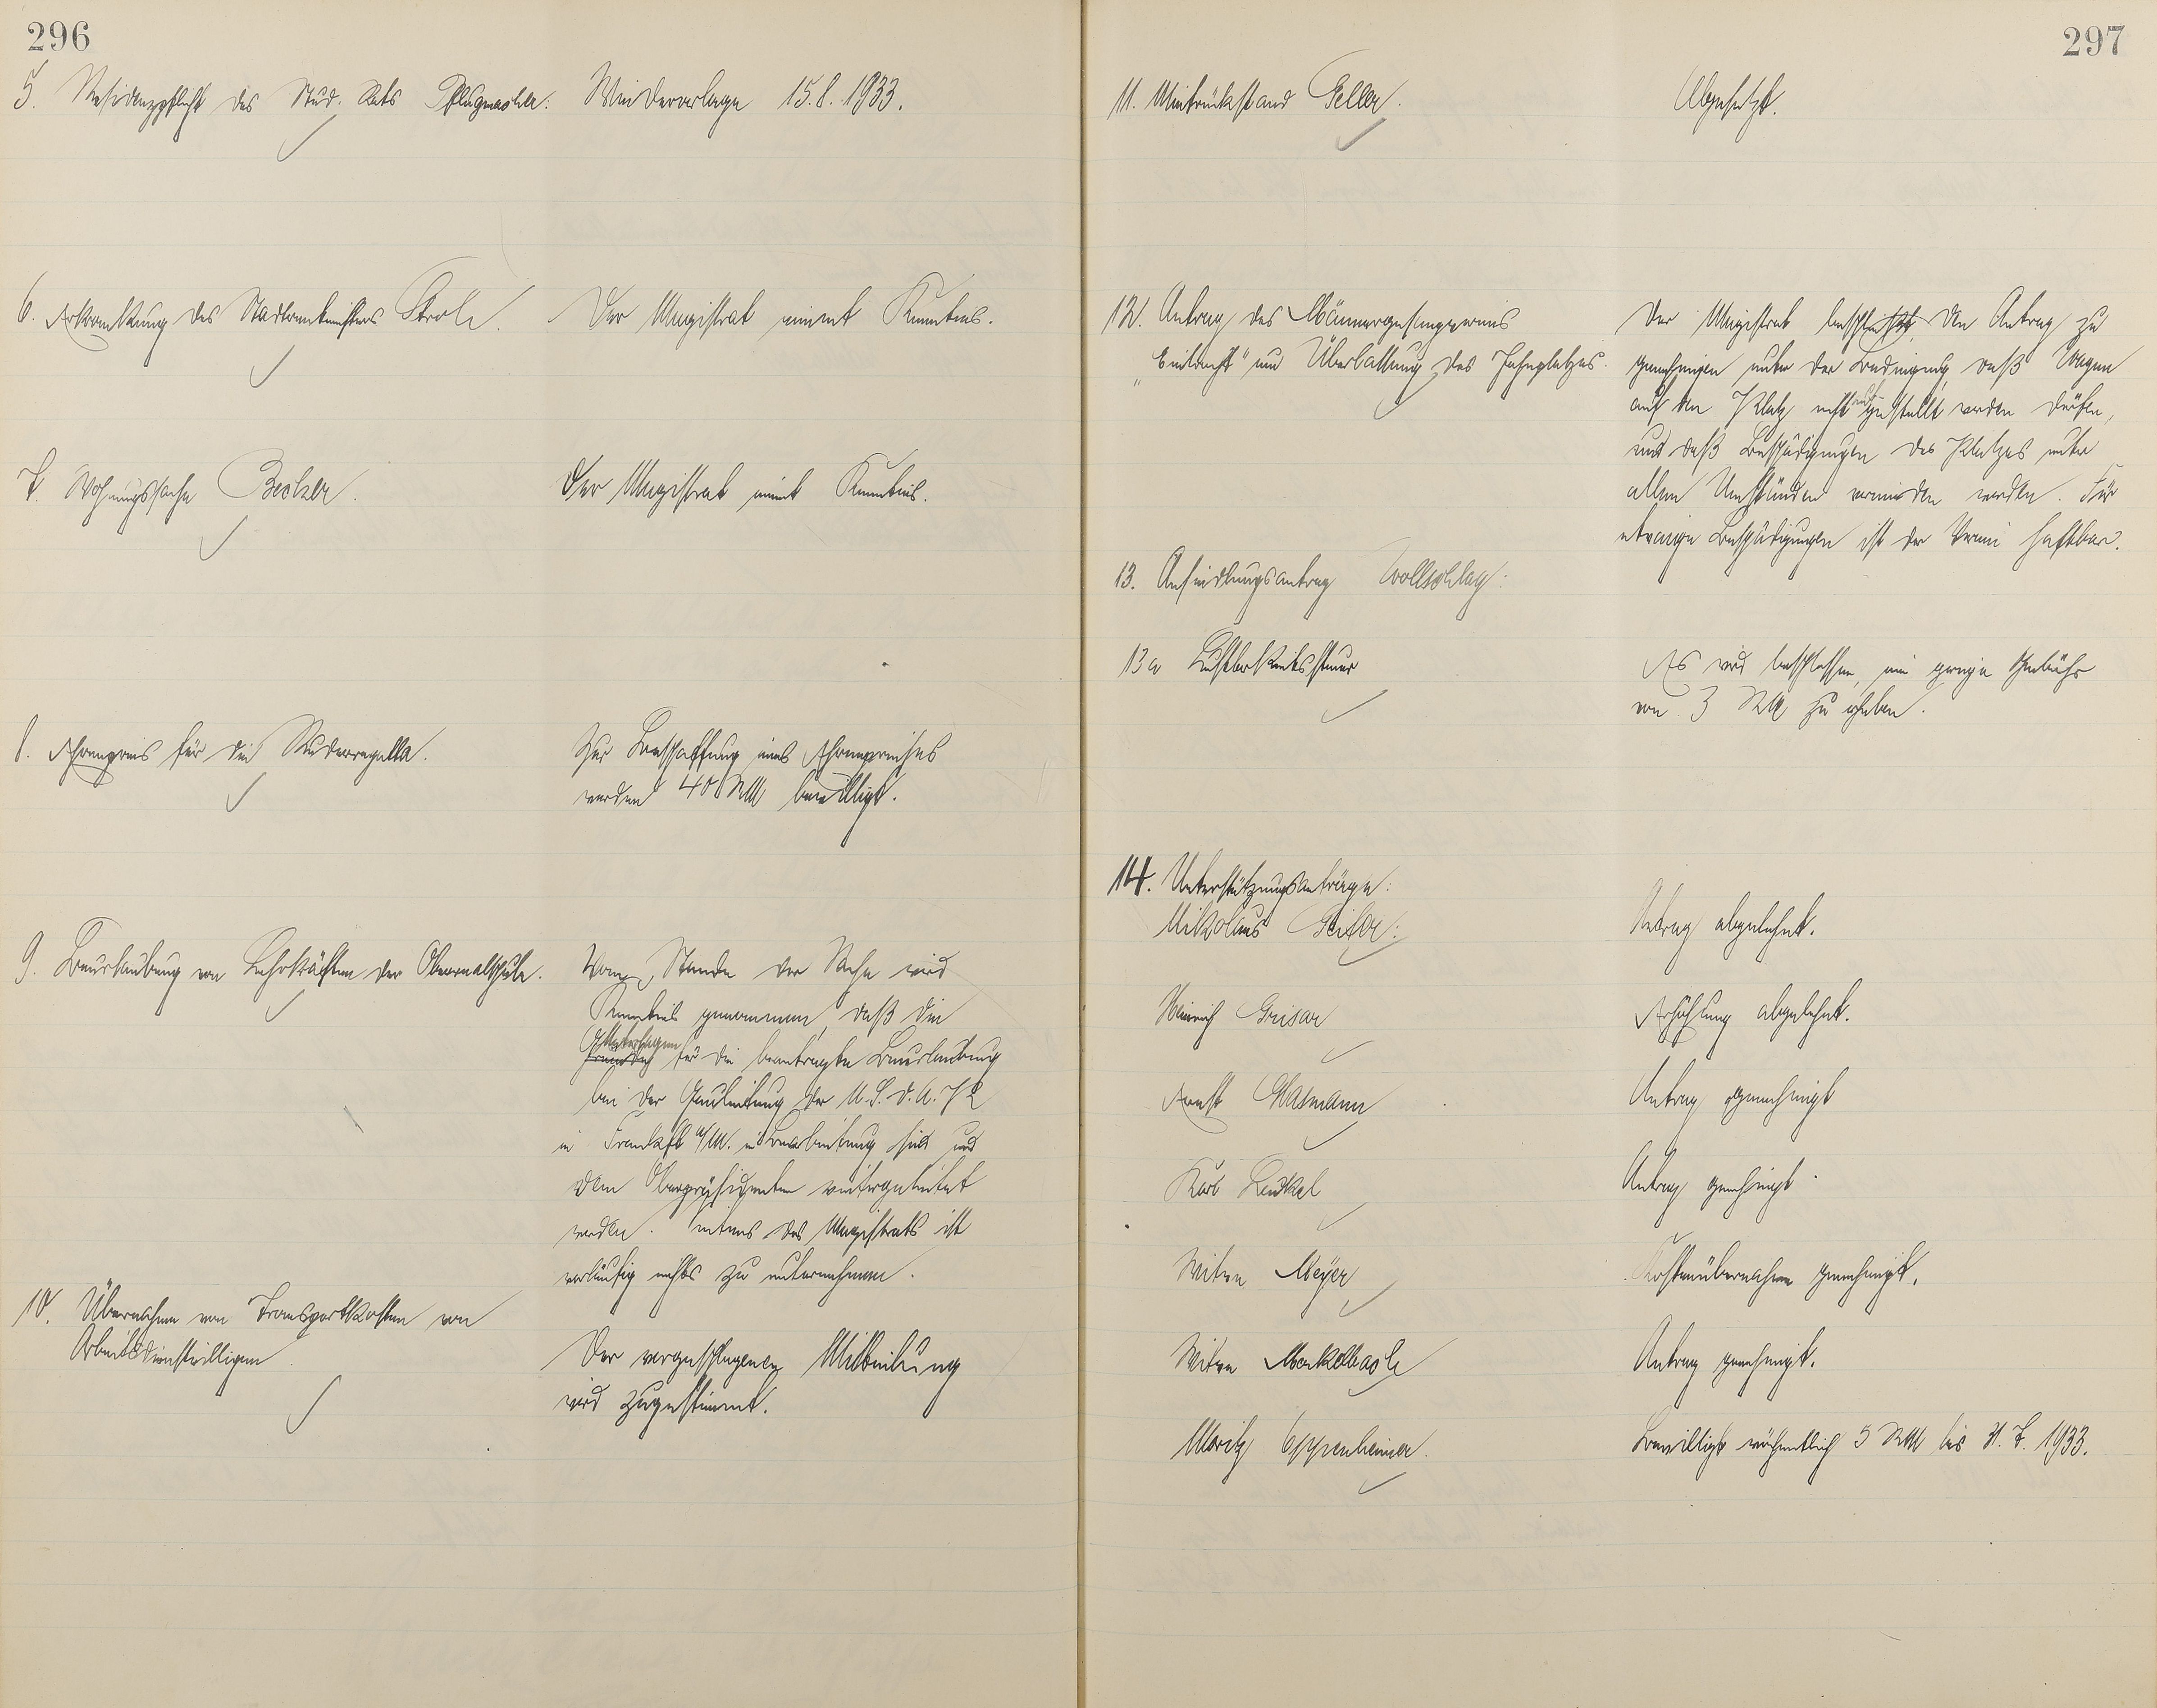 296
5. Residenzpflicht des Stud. Rats Pflugmacher:
Wiedervorlage 15.8.1933.
6. Erkrankung des Stadtrentmeisters Stroh.
Der Magistrat nimmt Kenntnis.
7. Wohnungssache Becker.
Der Magistrat nimmt Kenntnis.
8. Ehrenpreis für die Ruderregatta.
Zur Beschaffung eines Ehrenpreises
werden 40 RM bewilligt.
9. Beurlaubung von Lehrkräften der Oberrealschule.
Vom Stande der Sache wird
Kenntnis genommen, daß die
Unterlagen
für die beantragte Beurlaubung
bei der Gauleitung der N.S.D.A.P
in Frankft a/M. in Bearbeitung sind und
dem Oberpräsidenten weitergeleitet
werden. seitens des Magistrats ist
vorläufig nichts zu unternehmen.
10. Übernahme von Transportkosten von
Arbeitsdienstwilligen
Der vorgeschlagenen Mitteilung
wird zugestimmt.
297
11. Mietrückstand Geller.
Abgesetzt.
12. Antrag des Männergesangvereins
„Eintracht" um Überlassung des Jahnplatzes.
Der Magistrat beschließt, den Antrag zu
genehmigen unter der Bedingung, daß Wagen
auf den Platz nicht aufgestellt werden dürfen,
und daß Beschädigungen des Platzes unter
allen Umständen vermieden werden. Für
etwaige Beschädigungen ist der Verein haftbar.
13. Ansiedlungsantrag Wollschlag:
13a Lustbarkeitssteuer
Es wird beschlossen, eine geringe Gebühr
von 3 RM zu erheben.
14. Unterstützungsanträge:
Nikolaus Geisar:
Antrag abgelehnt.
Heinrich Grisar
Erhöhung abgelehnt.
Ernst Glasmann
Antrag genehmigt
Karl Henkel
Antrag genehmigt.
Witwe Meyer
Kostenübernahme genehmigt.
Witwe Merkelbach
Antrag genehmigt.
Moritz Oppenheimer.
Bewilligt wöchentlich 5 RM bis 31.7.1933.